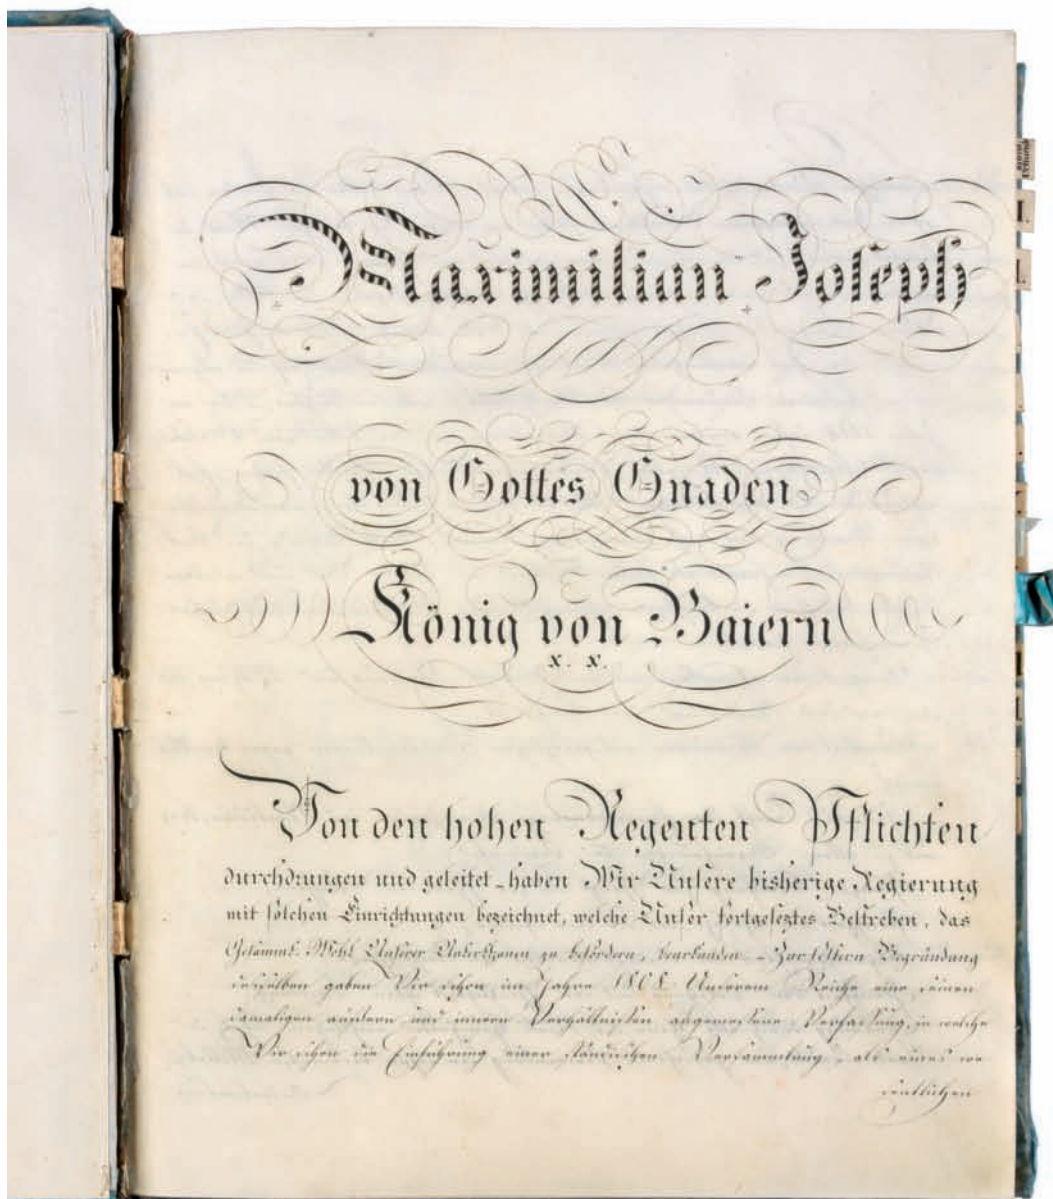 Maximilian Joseph
von Gottes Gnaden
König von Baiern
x. x.
Von den hohen Regenten Pflichten
durchdrungen und geleitet - haben Wir Unsere bisherige Regierung
mit solchen Einrichtungen bezeichnet, welche Unser fortgeseztes Bestreben, das
Gesammt-Wohl Unserer Unterthanen zu befördern, beurkunden. - Zur festern Begründung
desselben gaben Wir schon im Jahre 1808 Unserem Reiche eine seinen
damaligen äussern und innern Verhältnissen angemessene Verfassung, in welche
Wir schon die Einführung einer ständischen Versammlung, als eines we
sentlichen
I.
I.